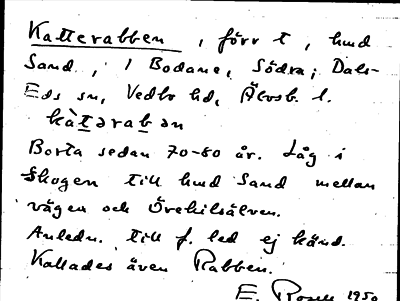 Katterabben, förr t, hmd
Sand, i Bodane, Södra, Dals-
Eds sn, Vedbo hd, Älvsb. l.
kàtərabən
Borta sedan 70-80 år. Låg i
skogen till hmd Sand mellan
vägen och Örekilsälven.
Anledn. till f. led ej känd.
Kallades även Rabben.
E. 1950